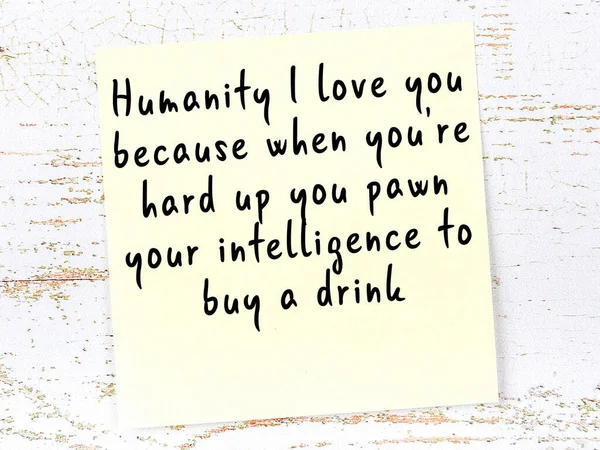 Humanity I love you
because when you're
hard up you pawn
your intelligence to
buy a drink